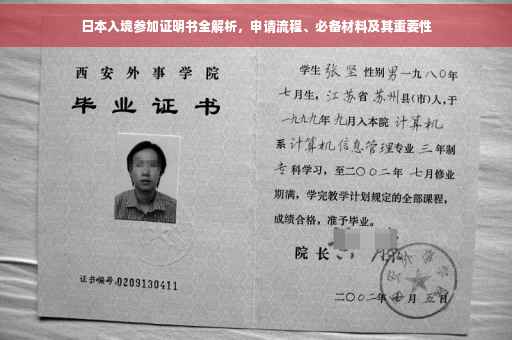 日本入境参加证明书全解析，申请流程、必备材料及其重要性
西安外事学院
毕业证书
证书编号:0209130411
学生张坚性别男一九八〇年
七月生，江苏省苏州县(市)人，于
一九九九年九月入本院计算机
系计算机信息管理专业三年制
专科学习，至二〇〇二年七月修业
期满，学完教学计划规定的全部课程，
成绩合格，准予毕业。
院长
二〇〇二年七月五日